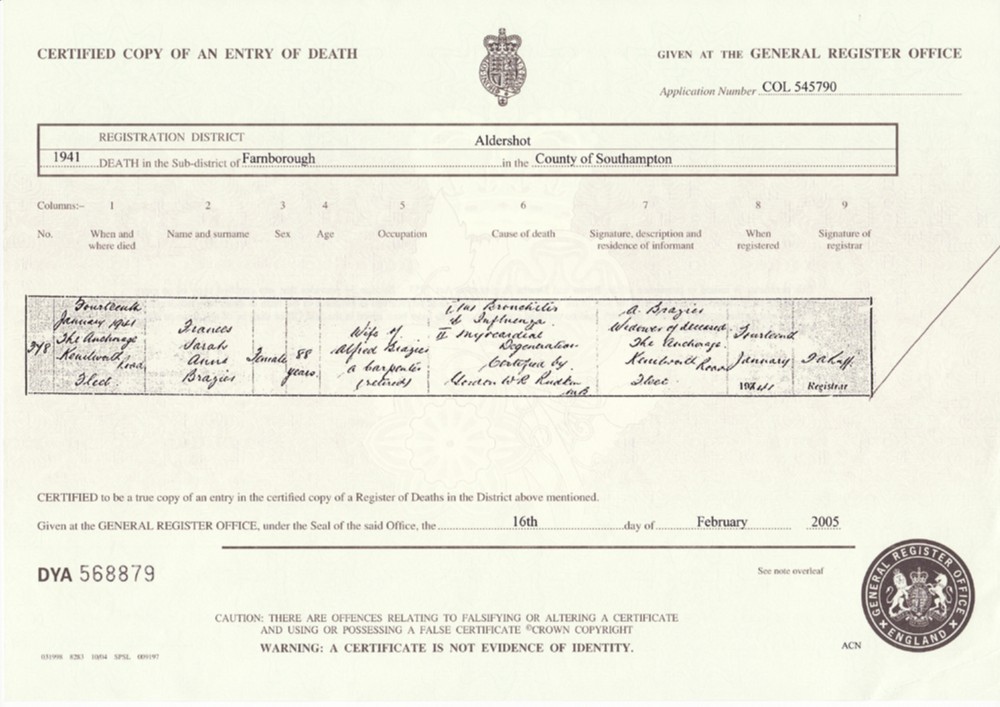 CERTIFIED COPY OF AN ENTRY OF DEATH
GIVEN AT THE GENERAL REGISTER OFFICE
Application Number COL 545790
REGISTRATION DISTRICT Aldershot
1941 DEATH in the Sub-district of Farnborough in the County of Southampton
Columns:– 1 2 3 4 5 6 7 8 9
No. When and where died Name and surname Sex Age Occupation Cause of death Signature, description and residence of informant When registered Signature of registrar
378
Fourteenth
January 1941
The Anchorage
Kenilworth
Road,
Fleet.
Frances
Sarah
Anne
Brazier
Female
88
years.
Wife of
Alfred Brazier
a carpenter
(retired)
Bronchitis
b Influenza.
II Myocardial
Degeneration
Certified by
Gordon W R
MB
A. Brazier
Widower of deceased
The Anchorage.
Kenilworth Road
Fleet.
Fourteenth
January
1941
Registrar
CERTIFIED to be a true copy of an entry in the certified copy of a Register of Deaths in the District above mentioned.
Given at the GENERAL REGISTER OFFICE, under the Seal of the said Office, the 16th day of February 2005
DYA 568879
See note overleaf
GENERAL REGISTER OFFICE
ENGLAND
CAUTION: THERE ARE OFFENCES RELATING TO FALSIFYING OR ALTERING A CERTIFICATE
AND USING OR POSSESSING A FALSE CERTIFICATE ©CROWN COPYRIGHT
WARNING: A CERTIFICATE IS NOT EVIDENCE OF IDENTITY.
ACN
031998 8283 10/04 SPSL 009197